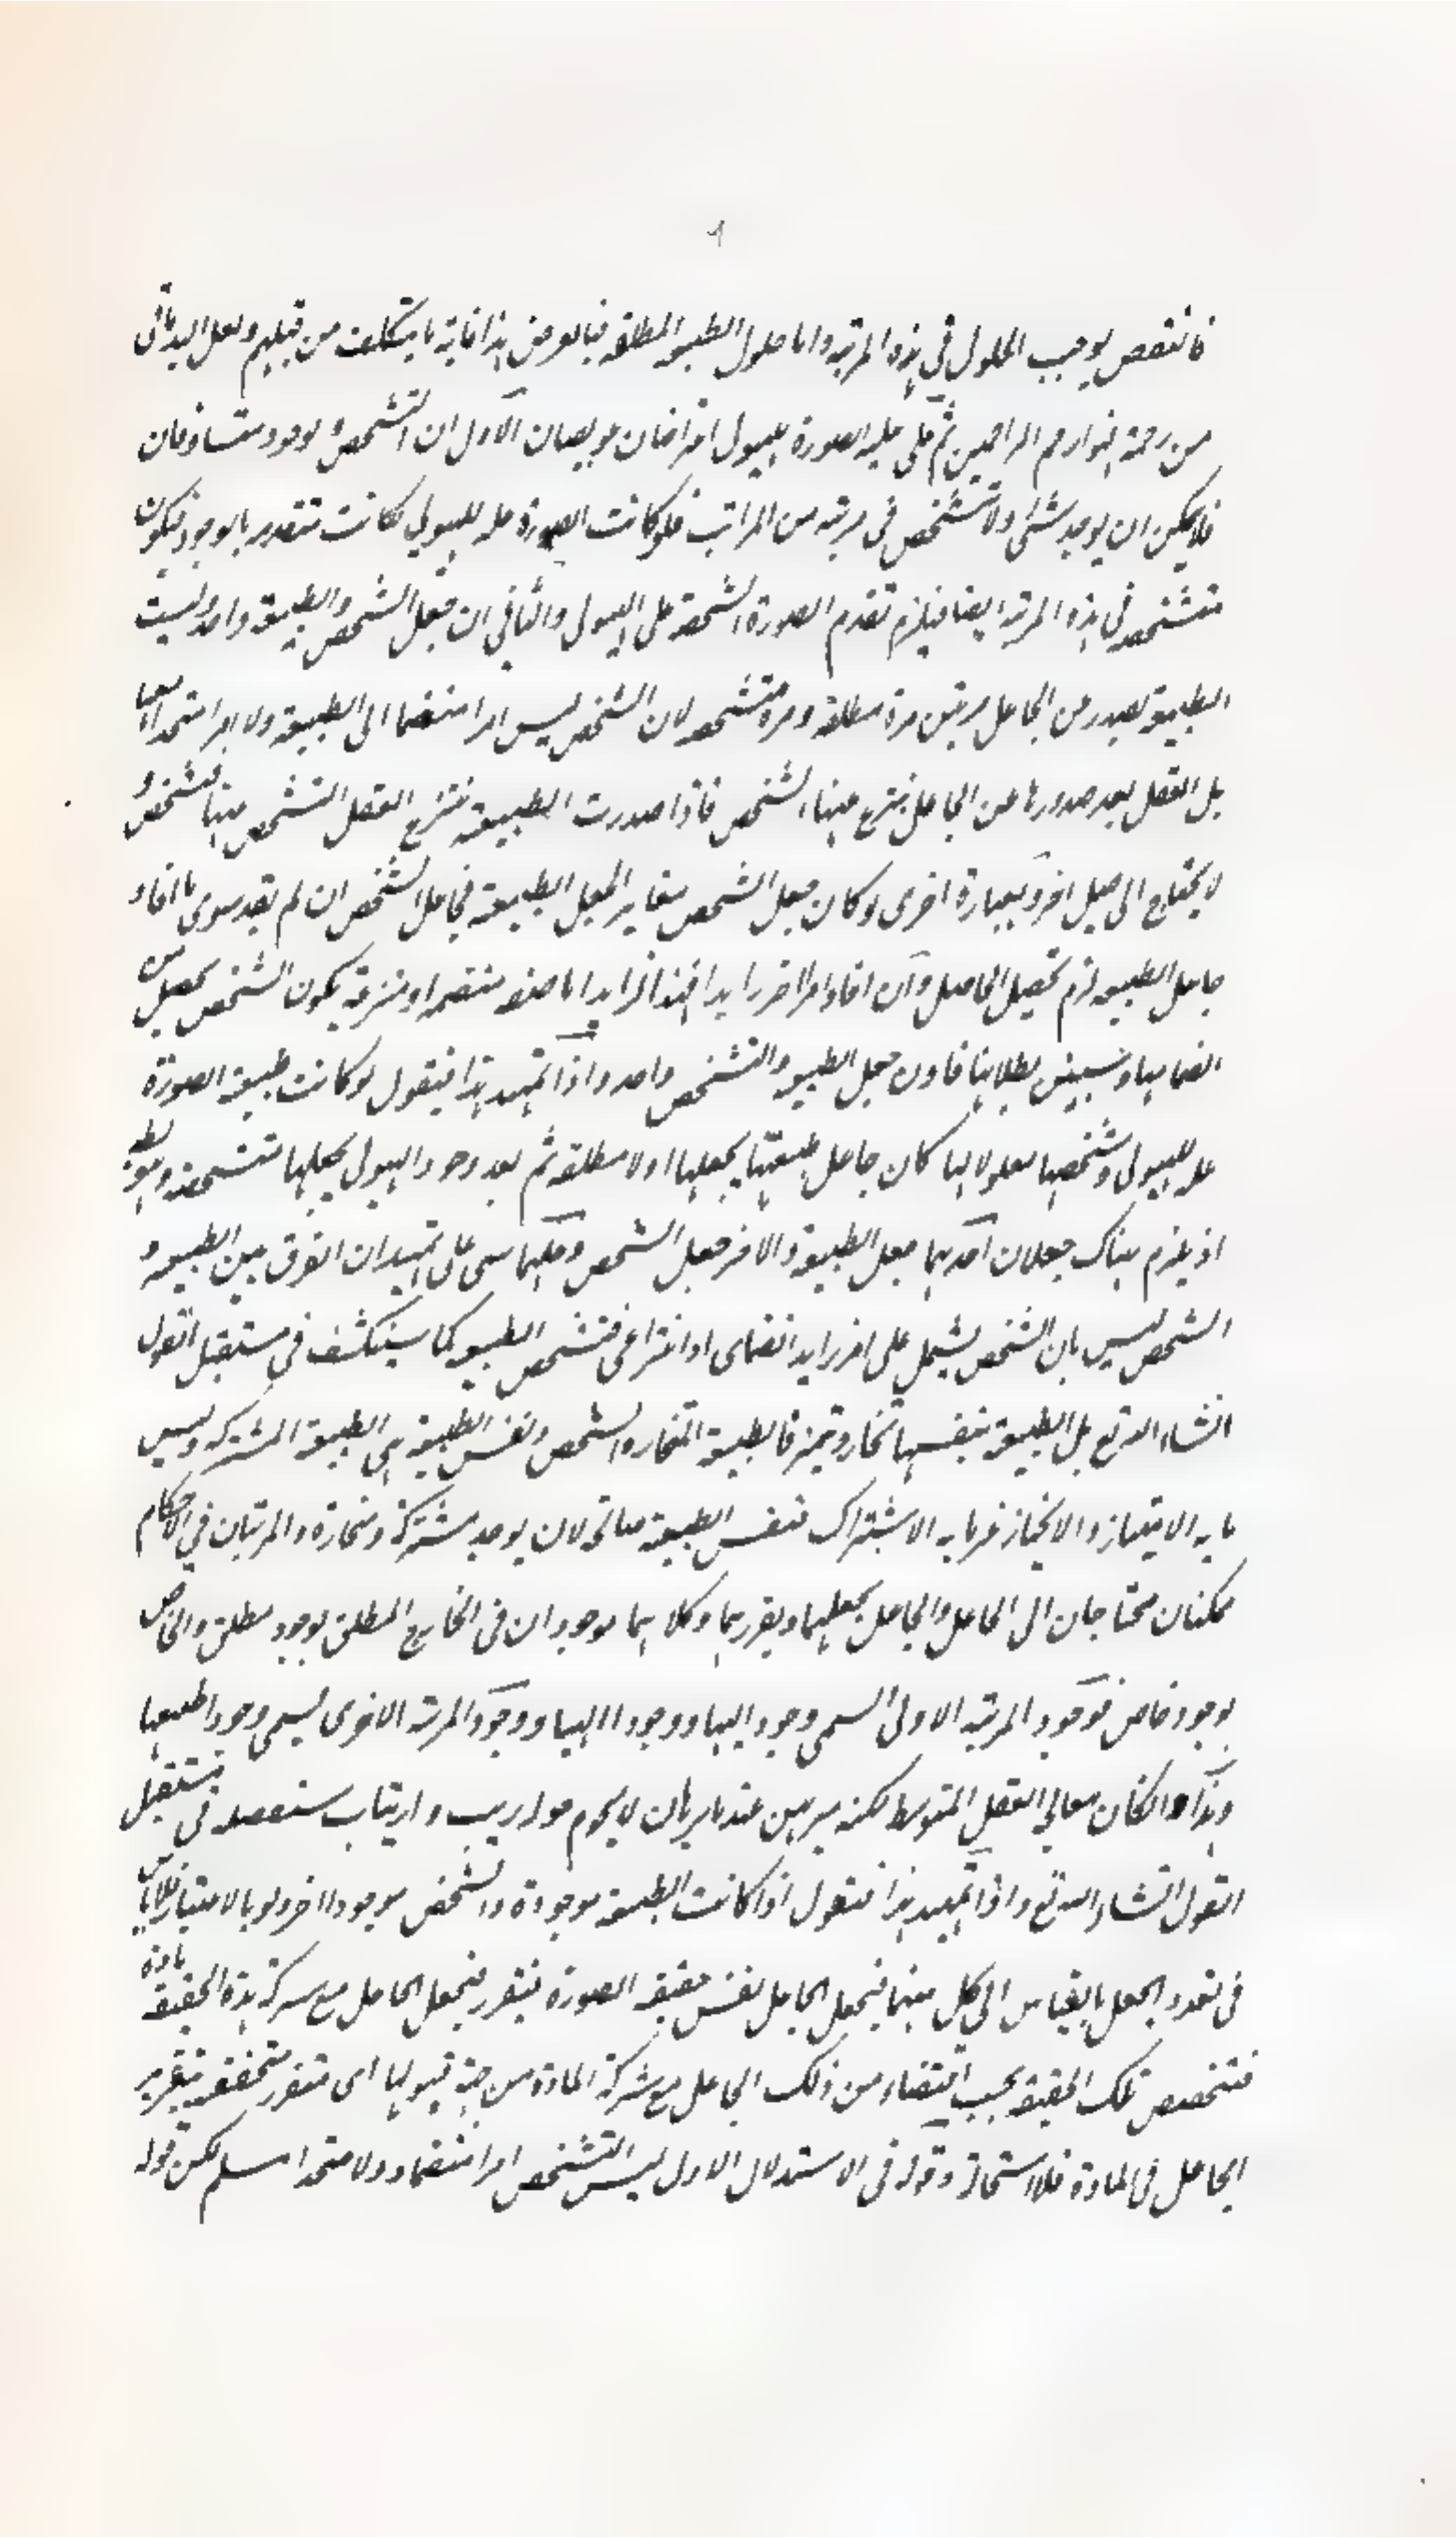 فالتقص يوجب الحلول في هذه المرتبة واما حلول الطبيعة المطلقة فبالعرض هذا غاية ما يتكلف من قبلهم ولعل الله ياتى
من رحمة انه ارحم الراحمين ثم على علية الصورة للهيولى اعتراضان عويصان الاول ان التشخص والوجود متساوقان
فلا يمكن ان يوجد شئ ولا تشخص في مرتبة من المراتب فلو كانت الصورة علة للهيولى لكانت متقدمة بالوجود فيكون
متشخصة في هذه المرتبة ايضا فيلزم تقدم الصورة الشخصية على الهيولى والثاني ان جعل الشخص والطبيعة واحد وليست
الطبيعة تصدر من الجاعل مرتين مرة مطلقة ومرة متشخصة لان الشخص ليس امرا منضما الى الطبيعة ولا امرا متحدا معها
بل العقل بعد صدورها عن الجاعل ينتزع عنها التشخص فاذا صدرت الطبيعة ينتزع العقل التشخص عنها فالتشخص
لا يحتاج الى جعل اخر وبعبارة اخرى لو كان جعل الشخص مغاير الجعل الطبيعة فجاعل الشخص ان لم يفد سوى ما افاد
جاعل الطبيعة لزم تحصيل الحاصل وان افاد امرا اخر زايدا فهذا الزايد اما صفة منضمة او منتزعة يكون الشخص يحصل من
انضمامها وسيبين بطلانها فاذن جعل الطبيعة والتشخص واحد واذا تمهد هذا فيقول لو كانت طبيعة الصورة
علة للهيولى وتشخصها معلولا لها كان جاعل طبيعتها يجعلها اولا مطلقة ثم بعد وجود الهيولى يجعلها متشخصة وهو بط
اذ يلزم هناك جعلان احدهما جعل الطبيعة والاخر جعل الشخص وحلهما يبتنى على تمهيد ان الفرق بين الطبيعة و
الشخص ليس بان الشخص يشتمل على امر زايد انضمامى او انتزاعى فتشخص الطبيعة كما سينكشف في مستقبل القول
انشاء الله تع بل الطبيعة بنفسها تنحاز وتميز فالطبيعة المنحازة الشخص ونفس الطبيعة هى الطبيعة المشتركة وليس
ما به الامتياز والانحياز غير ما به الاشتراك فنفس الطبيعة صالحة لان يوجد مشتركة ومنحازة والمرتبتان في الاحكام
ممكنتان محتاجان الى الجاعل والجاعل يجعلهما ويقررهما وكلاهما موجودان فى الخارج المطلق بوجود مطلق والخاص
بوجود خاص فوجود المرتبة الاولى يسمى وجود الهيا ووجودا الهيا ووجود المرتبة الاخرى يسمى وجودا طبيعيا
وهذا وان كان معالي العقل المتوسط لكنه مبرهن عندنا ببرهان لا يحوم حوله ريب وارتياب سنفصله في مستقبل
القول انشاء الله تع واذا تمهيد هذا فنقول اذا كانت الطبيعة موجودة والشخص موجودا اخر ولو بالامتياز فلا باس
فى تعدد الجعل بالقياس الى كل منهما فيجعل الجاعل نفس حقيقة الصورة فيتقرر فيجعل الجاعل مع شركة هذه الحقيقة مادة
فتخصص تلك الحقيقة بحسب اقتضاء من ذلك الجاعل مع شركة المادة من جهة قبولها اى متقرر متحققة بتقرير
الجاعل فى المادة فلا استحالة وقوله فى الاستدلال الاول ليس التشخص امرا منضما ولا متحدا مسلم لكن قوله